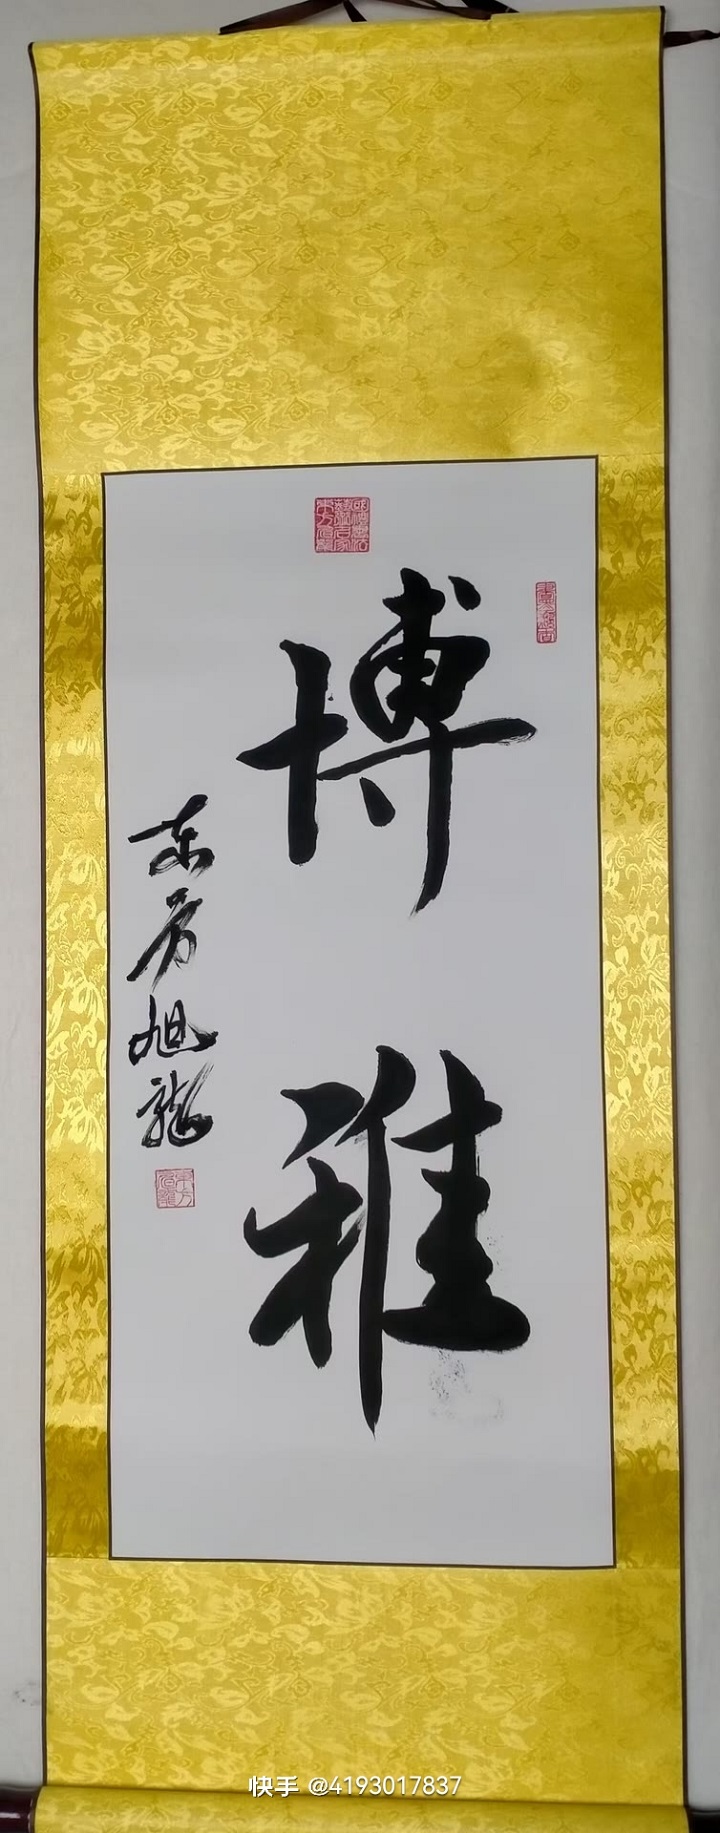 博雅
东方旭龙
快手 @4193017837